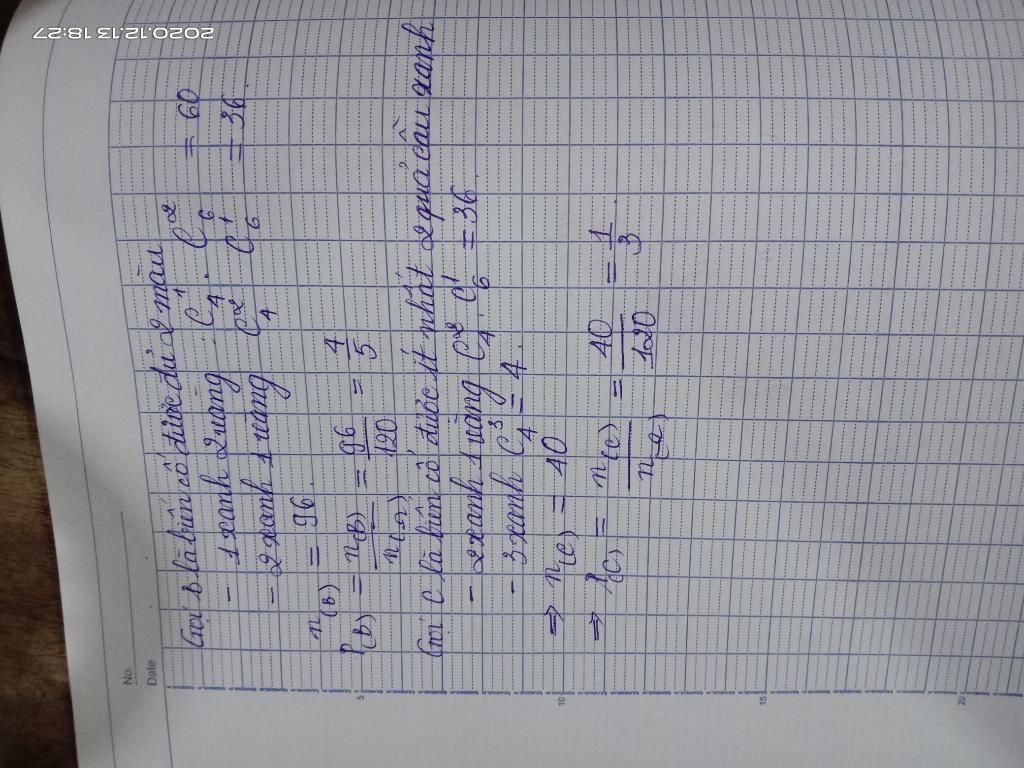 2020.12.13 18:27
No.
Date
Gọi B là biến cố được đủ 2 màu
- 1 xanh 2 vàng : C¹₄ . C²₆ = 60
= 2 xanh 1 vàng C²₄ C¹₆ = 36.
n(B) = 96.
P(B) = n(B)/n(Ω) = 96/120 = 4/5
Gọi C là biến cố được ít nhất 2 quả cầu xanh
- 2 xanh 1 vàng C²₄ . C¹₆ = 36.
- 3 xanh C³₄ = 4.
⇒ n(C) = 40
⇒ P(C) = n(C)/n(Ω) = 40/120 = 1/3.
5
10
15
20